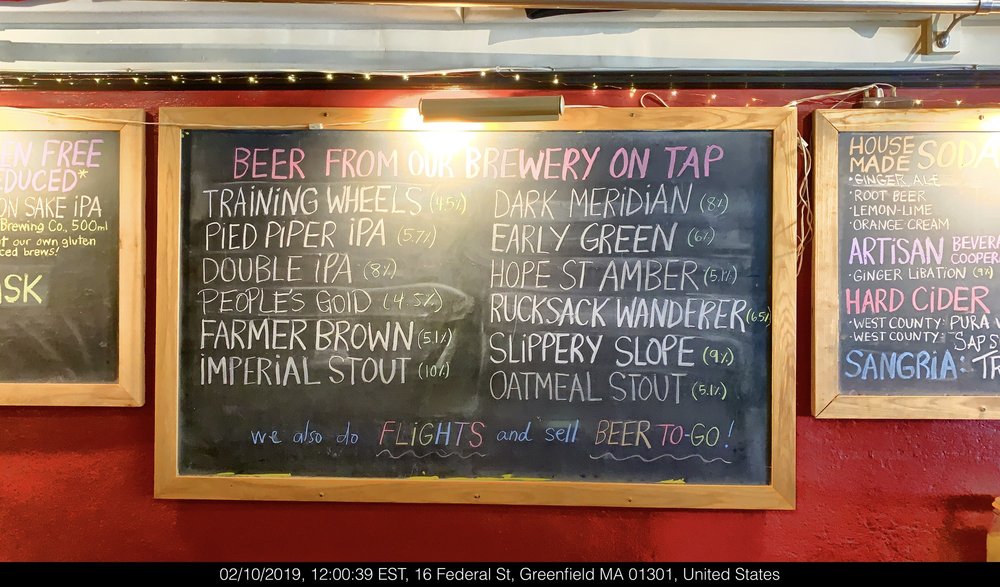 EN FREE
EDUCED*
ON SAKE IPA
Brewing Co., 500ml
our own gluten
ced brews!
ASK
BEER FROM OUR BREWERY ON TAP
TRAINING WHEELS (4.5%)
PIED PIPER IPA (5.7%)
DOUBLE IPA (8%)
PEOPLE'S GOLD (4.5%)
FARMER BROWN (5.1%)
IMPERIAL STOUT (10%)
DARK MERIDIAN (8%)
EARLY GREEN (6%)
HOPE ST AMBER (5.1%)
RUCKSACK WANDERER (6.5%)
SLIPPERY SLOPE (9%)
OATMEAL STOUT (5.1%)
we also do FLIGHTS and sell BEER TO-GO!
HOUSE MADE SODA
• GINGER ALE
• ROOT BEER
• LEMON-LIME
• ORANGE CREAM
ARTISAN BEVERA
COOPER
• GINGER LIBATION (9%)
HARD CIDER
• WEST COUNTY: PURA
• WEST COUNTY: SAP S
SANGRIA: TR
02/10/2019, 12:00:39 EST, 16 Federal St, Greenfield MA 01301, United States